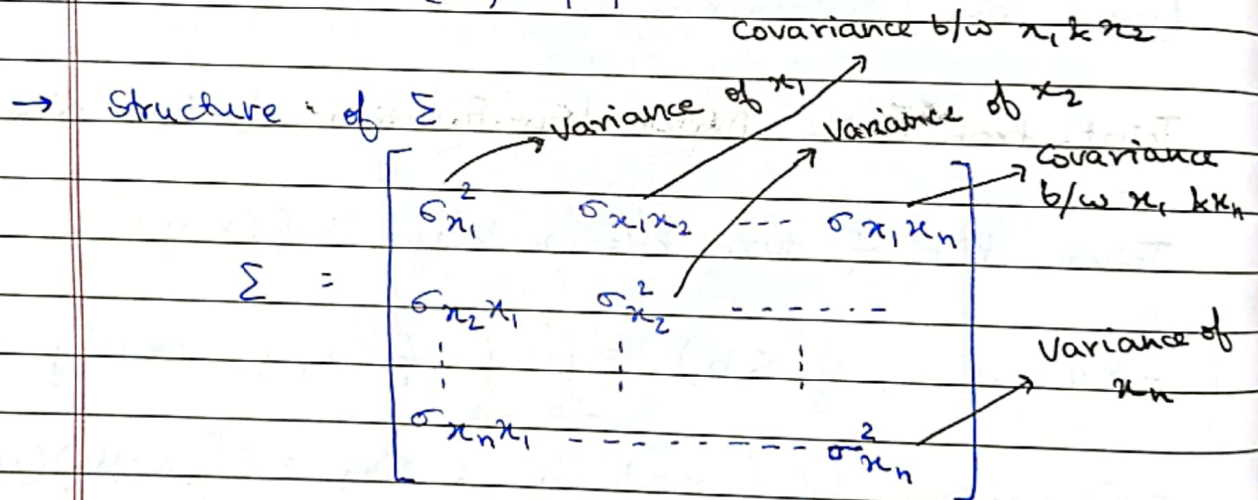 covariance b/w x₁ & x₂
→ Structure of Σ
variance of x₁
variance of x₂
covariance
b/w x₁ & xₙ
σ²x₁ σx₁x₂ --- σx₁xₙ
Σ = σx₂x₁ σ²x₂ ------
σxₙx₁ --------- σ²xₙ
variance of
xₙ